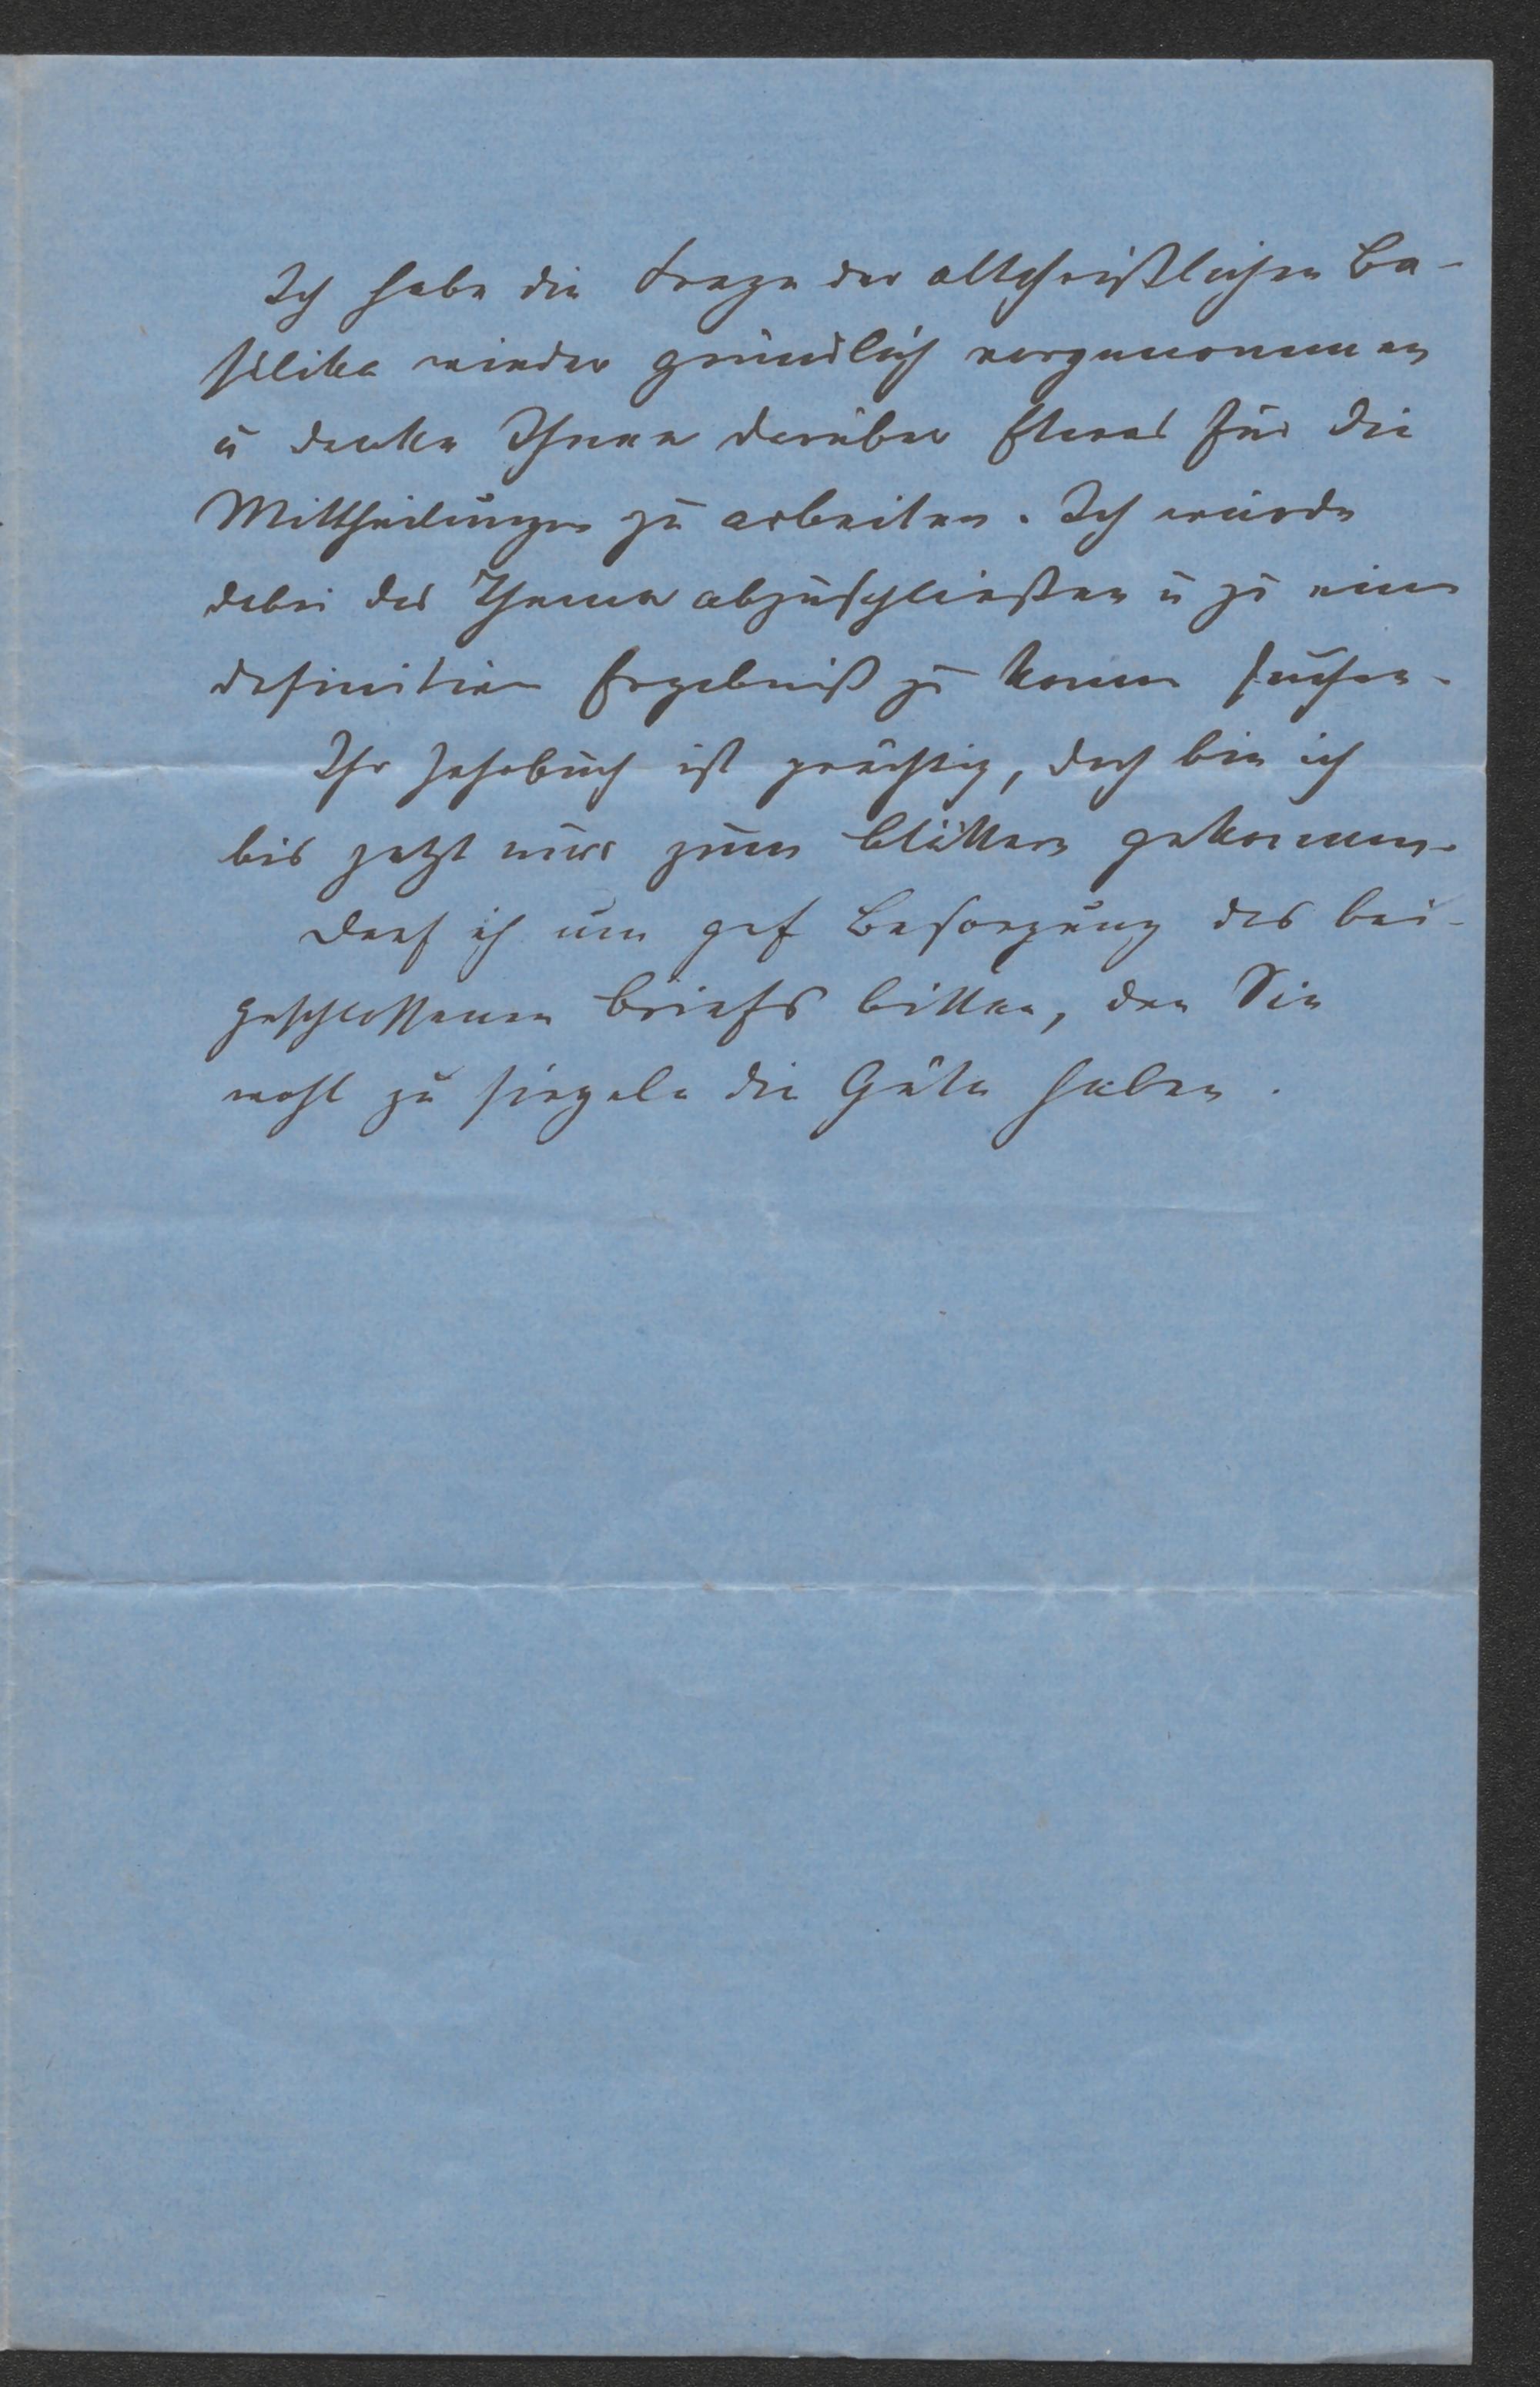 Ich habe die Frage der altchristlichen Ba-
silika wieder gründlich vorgenommen
u denke Ihnen darüber Etwas für die
Mittheilungen zu arbeiten. Ich würde
dabei das Thema abzuschließen u zu einem
definitiven Ergebniß zu kommen suchen.
Ihr Jahrbuch ist prächtig, doch bin ich
bis jetzt nur zum Blättern gekommen.
Darf ich um gef Besorgung des bei-
geschlossenen Briefs bitten, den Sie
wohl zu siegeln die Güte haben.